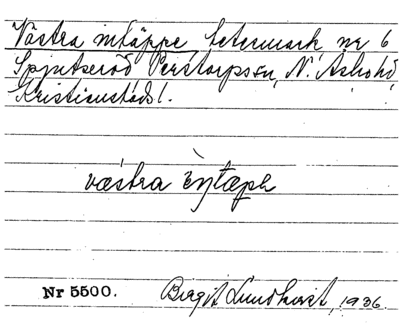 Västra intäppe, betesmark, nr 6
Spjutseröd Perstorps sn, N. Åsbo hd,
Kristianstads l.
västra ìntæpe
Nr 5500. Birgit Lundkvist, 1936.